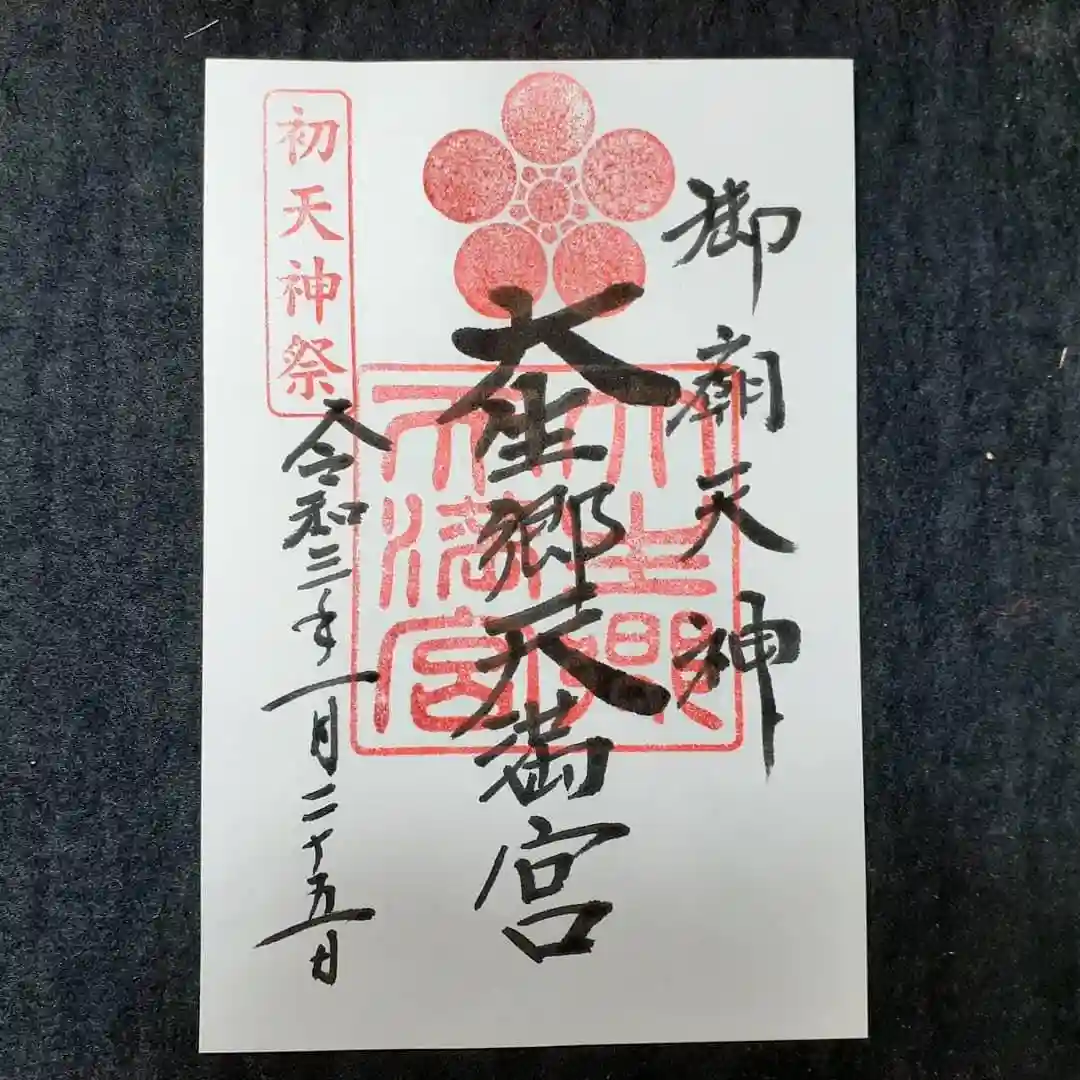 御廟天神
大生郷天満宮
大生郷
天満宮
初天神祭
令和三年一月二十五日